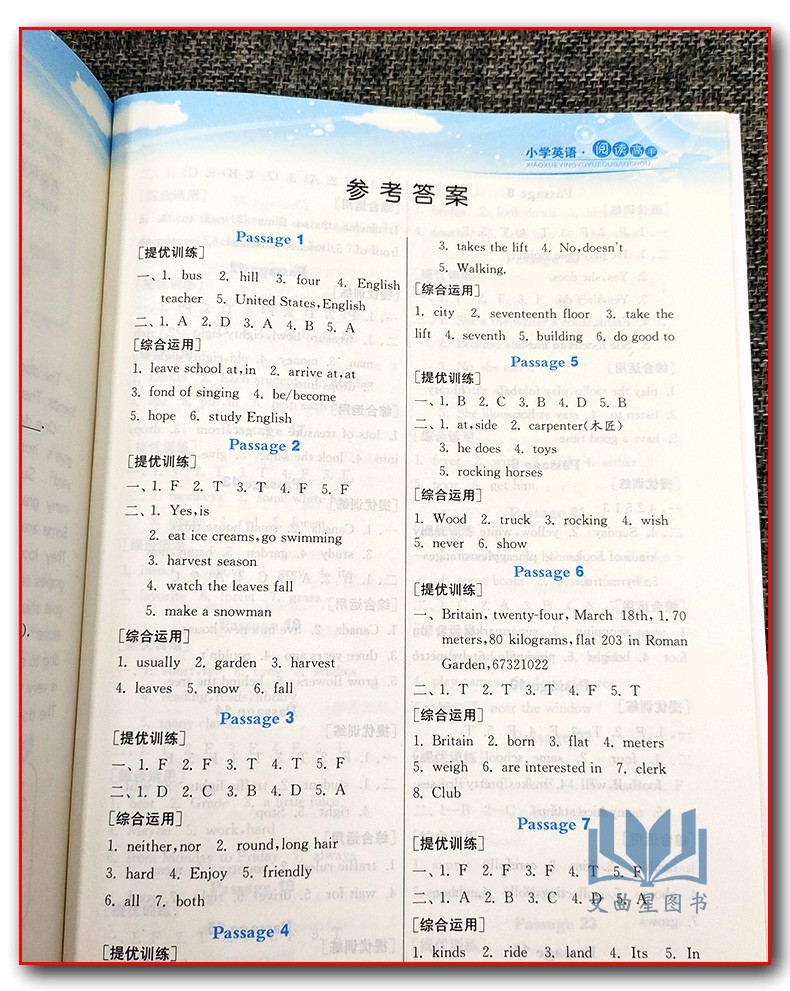 小学英语·阅读高手
XIAOXUEYINGYUYUEDUGAOSHOU
参考答案
Passage 1
[提优训练]
一、1. bus 2. hill 3. four 4. English
teacher 5. United States,English
二、1. A 2. D 3. A 4. B 5. A
[综合运用]
1. leave school at,in 2. arrive at,at
3. fond of singing 4. be/become
5. hope 6. study English
Passage 2
[提优训练]
一、1. F 2. T 3. T 4. F 5. F
二、1. Yes,is
2. eat ice creams,go swimming
3. harvest season
4. watch the leaves fall
5. make a snowman
[综合运用]
1. usually 2. garden 3. harvest
4. leaves 5. snow 6. fall
Passage 3
[提优训练]
一、1. F 2. F 3. T 4. T 5. F
二、1. D 2. C 3. B 4. D 5. A
[综合运用]
1. neither,nor 2. round,long hair
3. hard 4. Enjoy 5. friendly
6. all 7. both
Passage 4
[提优训练]
3. takes the lift 4. No,doesn't
5. Walking.
[综合运用]
1. city 2. seventeenth floor 3. take the
lift 4. seventh 5. building 6. do good to
Passage 5
[提优训练]
一、1. B 2. C 3. B 4. D 5. B
二、1. at,side 2. carpenter(木匠)
3. he does 4. toys
5. rocking horses
[综合运用]
1. Wood 2. truck 3. rocking 4. wish
5. never 6. show
Passage 6
[提优训练]
一、Britain, twenty-four, March 18th, 1.70
meters,80 kilograms,flat 203 in Roman
Garden,67321022
二、1. T 2. T 3. T 4. F 5. T
[综合运用]
1. Britain 2. born 3. flat 4. meters
5. weigh 6. are interested in 7. clerk
8. Club
Passage 7
[提优训练]
一、1. F 2. F 3. F 4. T 5. F
二、1. A 2. B 3. C 4. D 5. A
文曲星图书
[综合运用]
1. kinds 2. ride 3. land 4. Its 5. In